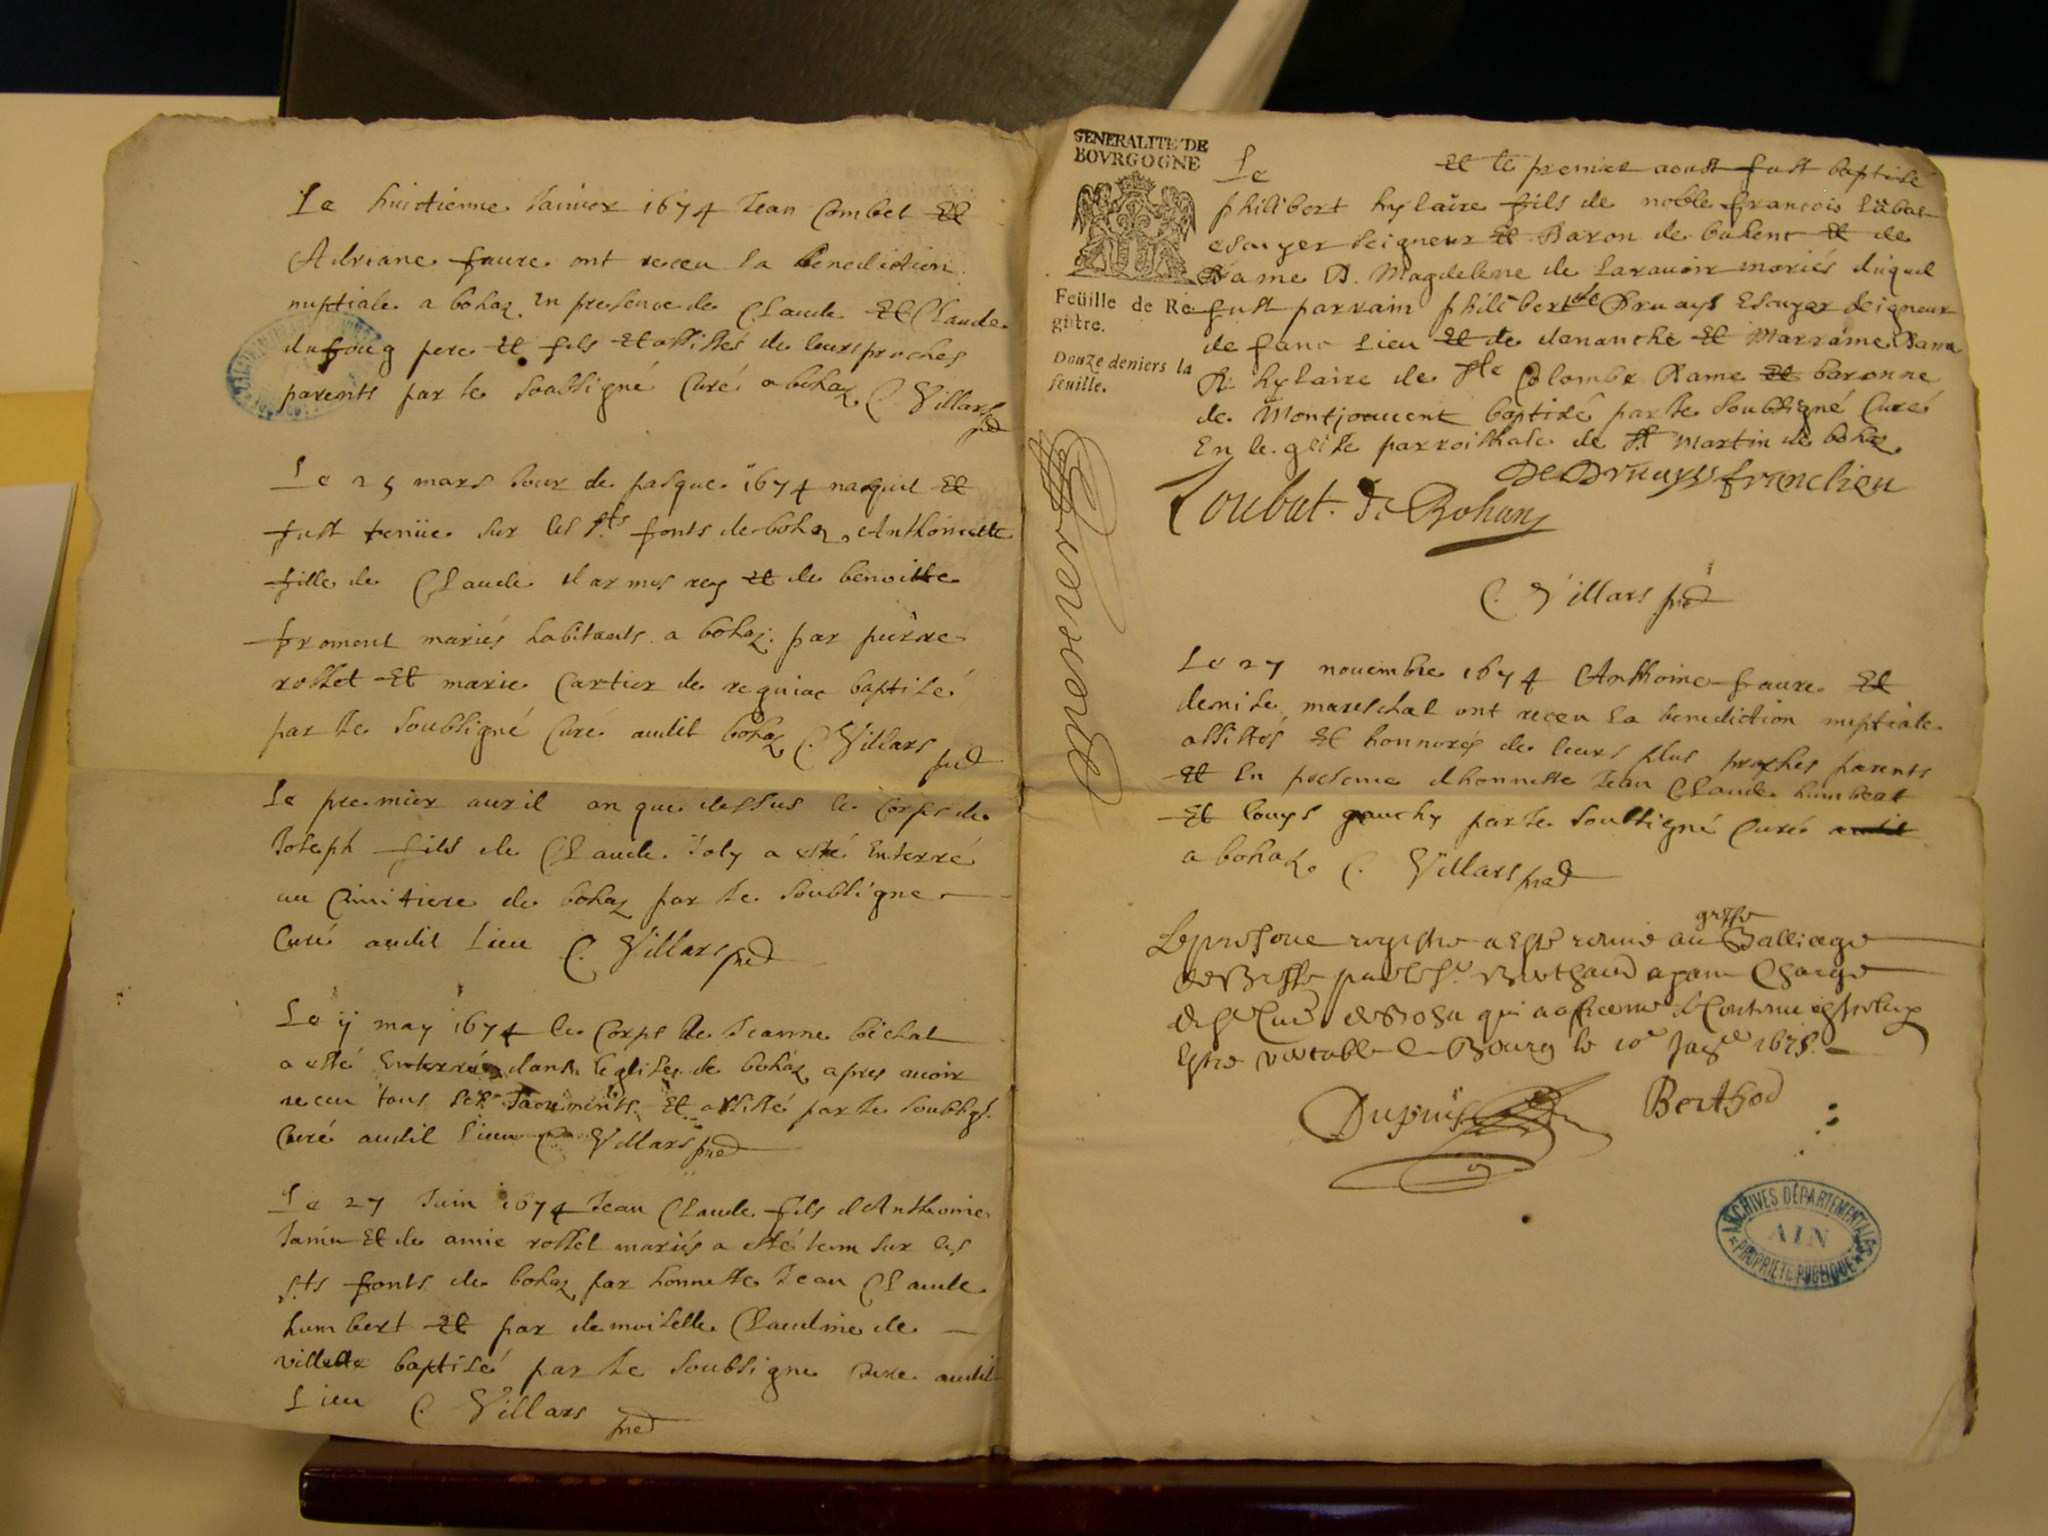 Le huictienne Januier 1674 Jean Combet Et
Adriane faure ont receu la benediction
nuptiale a bohaz En presence de Claude Et Claude
dufoug pere Et fils Et assistés de leurs proches
parents par le soubsigné Curé a bohaz C. Villars
Le 25 mars Jour de pasque 1674 nasquit Et
fust tenüe sur les Sts fonts de bohaz Anthoinette
fille de Claude Et de benoitte
froment mariés habitants a bohaz par pierre
rosset Et marie Cartier de reguiac baptisé
par le soubsigné Curé audit bohaz C. Villars
Le premier auril an que dessus le Corps de
Joseph fils de Claude Joly a esté Enterré
au Cimitiere de bohaz par le soubsigne
Curé audit Lieu C. Villars
Le ij may 1674 le Corps de Jeanne bichat
a esté Enterré dans l'eglise de bohaz apres auoir
receu tous ses Sacrements Et assisté par le soubsig.
Curé audit Lieu C. Villars
Le 27 Juin 1674 Jean Claude fils d'Anthoine
Janin Et de amie rosset mariés a esté tenu sur les
Sts fonts de bohaz par honneste Jean Claude
humbert Et par demoiselle Claudine de
villette baptisé par le soubsigne Cure audit
Lieu C. Villars
GENERALITE DE
BOVRGOGNE
Feüille de Re
gistre.
Douze deniers la
feuille.
Le Et le premier aoust fust baptisé
philibert hylaire fils de noble françois
escuyer seigneur Et Baron de bohent Et de
Dame D. Magdeleine de Larauoir mariés duquel
fust parrain philibert de Druays Escuyer seigneur
de franc Lieu Et de denanche Et Marraine Dame
D. hylaire de Ste Colombe Dame Et baronne
de Montjouuent baptisé par le soubsigné Curé
En leglise parroissiale de St martin de bohaz
De Druays franclieu
Loubat. De Bohan
C. Villars
Le 27 nouembre 1674 Anthoine faure Et
denise mareschal ont receu la benediction nuptiale
assistés Et honnorés de leurs plus proches parents
Et En presence d'honneste Jean Claude humbert
Et Louys gauchy par le soubsigné Curé
a bohaz. C. Villars
Le present registre a esté remis au greffe Balliage
de Bresse par le Sr Berthaud ayant Charge
du Sr Curé de Boha qui a affirmé le Contenu
Estre veritable a Bourg le 10e 1675.
Dupuis
Berthod
ARCHIVES DÉPARTEMENTALES
AIN
PROPRIÉTÉ PUBLIQUE